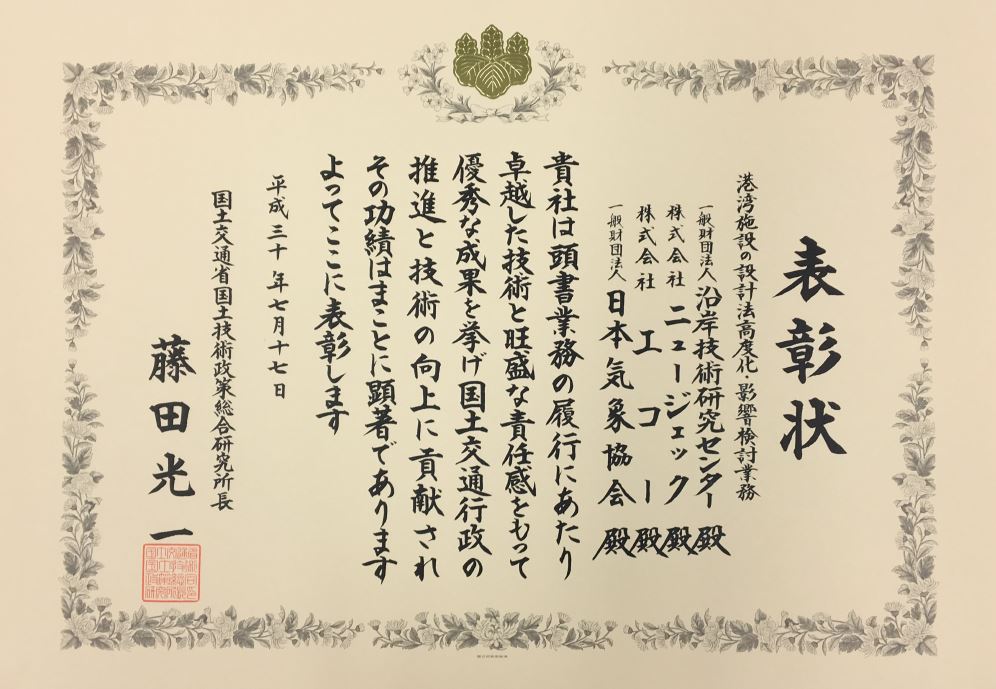 表彰状
港湾施設の設計法高度化・影響検討業務
一般財団法人 沿岸技術研究センター 殿
株式会社 ニュージェック 殿
株式会社 エコー 殿
一般財団法人 日本気象協会 殿
貴社は頭書業務の履行にあたり
卓越した技術と旺盛な責任感をもって
優秀な成果を挙げ国土交通行政の
推進と技術の向上に貢献され
その功績はまことに顕著であります
よってここに表彰します
平成三十年七月十七日
国土交通省国土技術政策総合研究所長
藤田光一